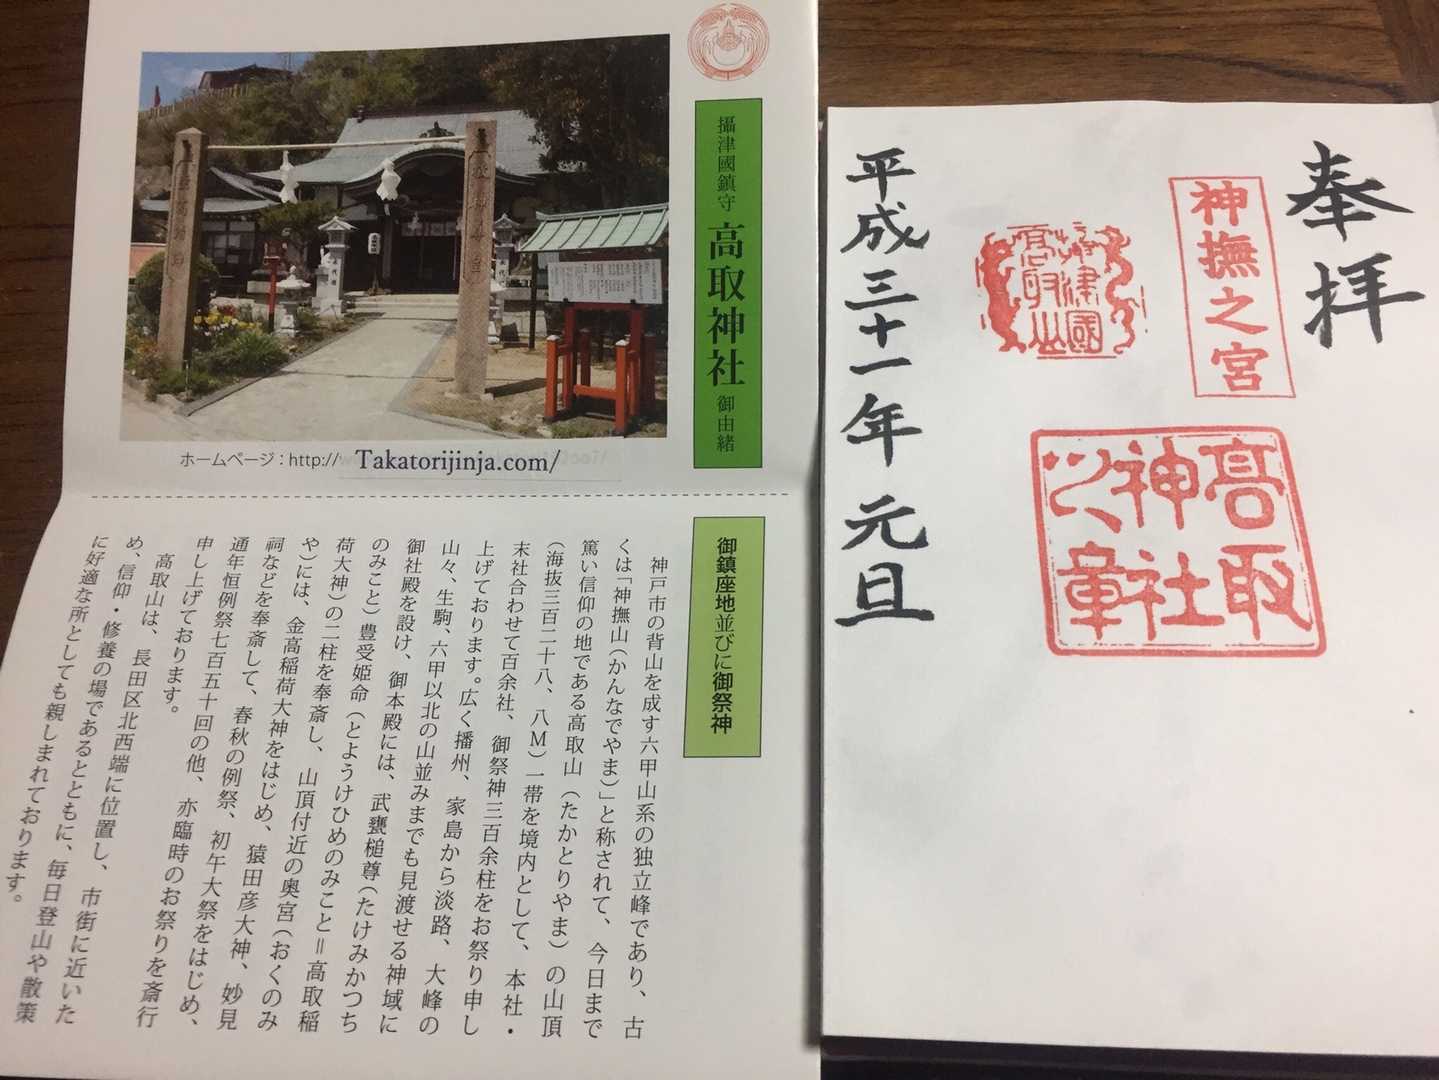 攝津國鎮守 高取神社 御由緒
ホームページ：http:// Takatorijinja.com/
御鎮座地並びに御祭神
神戸市の背山を成す六甲山系の独立峰であり、古
くは「神撫山（かんなでやま）」と称されて、今日まで
篤い信仰の地である高取山（たかとりやま）の山頂
（海抜三百二十八、八M）一帯を境内として、本社・
末社合わせて百余社、御祭神三百余柱をお祭り申し
上げております。広く播州、家島から淡路、大峰の
山々、生駒、六甲以北の山並みまでも見渡せる神域に
御社殿を設け、御本殿には、武甕槌尊（たけみかつち
のみこと）豊受姫命（とようけひめのみこと＝高取稲
荷大神）の二柱を奉斎し、山頂付近の奥宮（おくのみ
や）には、金高稲荷大神をはじめ、猿田彦大神、妙見
祠などを奉斎して、春秋の例祭、初午大祭をはじめ、
通年恒例祭七百五十回の他、亦臨時のお祭りを斎行
申し上げております。
高取山は、長田区北西端に位置し、市街に近いた
め、信仰・修養の場であるとともに、毎日登山や散策
に好適な所としても親しまれております。
奉拝
神撫之宮
攝津國
高取山
高取
神社
之章
平成三十一年 元旦